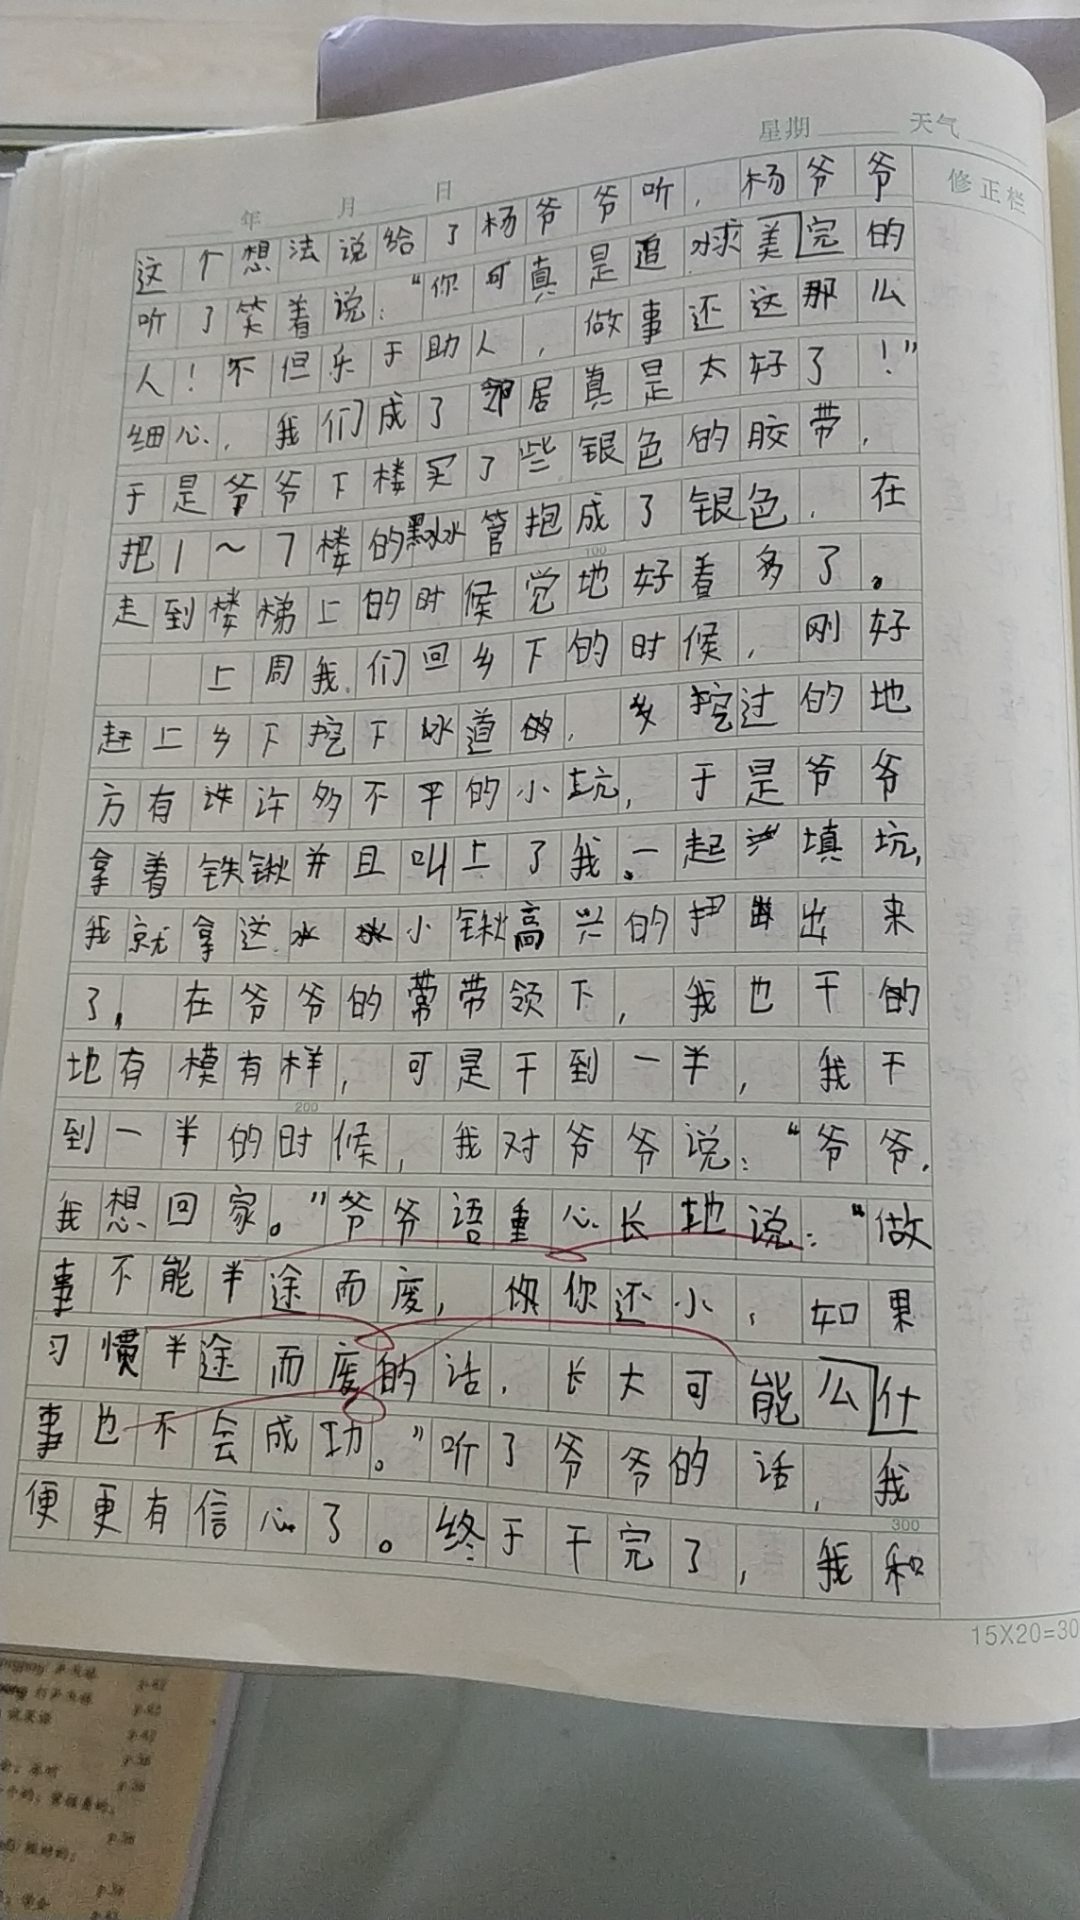 星期 天气
年 月 日
修正栏
这个想法说给了杨爷爷听，杨爷爷
听了笑着说：“你可真是追求美完的
人！不但乐于助人，做事还这那么
细心，我们成了邻居真是太好了！”
于是爷爷下楼买了些银色的胶带，
把1～7楼的黑水管抱成了银色，在
走到楼梯上的时候觉地好着多了。
上周我们回乡下的时候，刚好
赶上乡下挖下水道的，挖过的地
方有许多不平的小坑，于是爷爷
拿着铁锹并且叫上了我。一起填坑，
我就拿这小锹高兴的出来
了，在爷爷的带领下，我也干的
地有模有样，可是干到一半，我干
到一半的时候，我对爷爷说：“爷爷，
我想回家。”爷爷语重心长地说：“做
事不能半途而废，你还小，如果
习惯半途而废的话，长大可能么什
事也不会成功。”听了爷爷的话，我
便更有信心了。终于干完了，我和
100
200
300
15X20=30